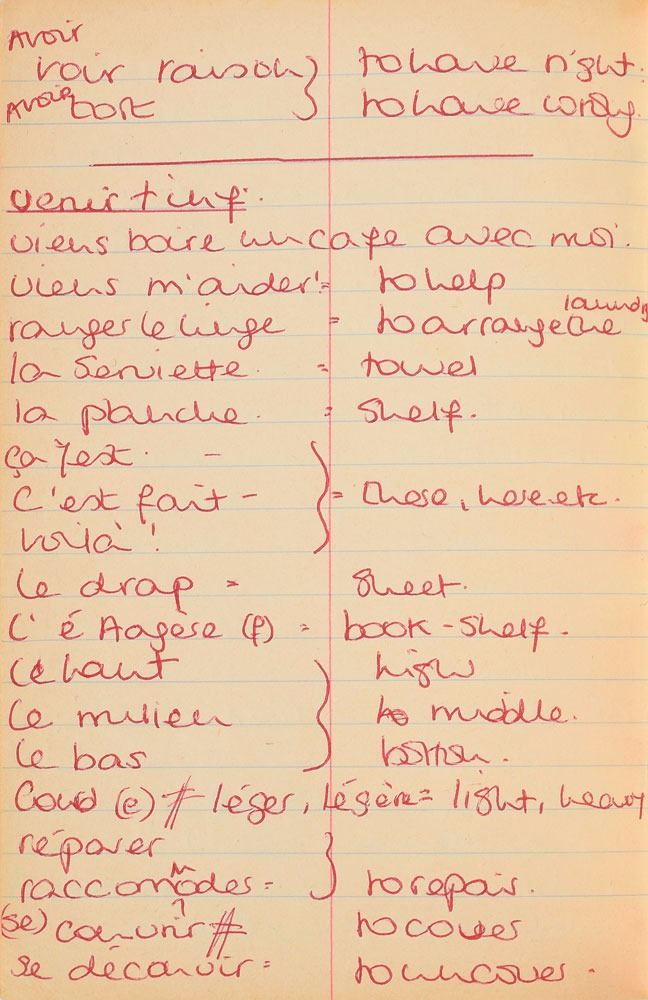 AVOIR
voir raison } to have right.
AVOIR tort } to have wrong.
venir + inf.
viens boire un cafe avec moi.
viens m'aider! = to help
laundry
ranger le linge = to arrange the
la serviette. = towel
la planche. = shelf.
ça y est. -
C'est fait - } = there, here etc.
voilà!
le drap = sheet.
l'étagère (f) = book-shelf.
le haut high
le milieu } middle.
le bas bottom.
lourd (e) ≠ léger, légère = light, heavy
réparer
raccommodes = } to repair.
(se) couvrir ≠ to cover
se découvrir = to uncover.